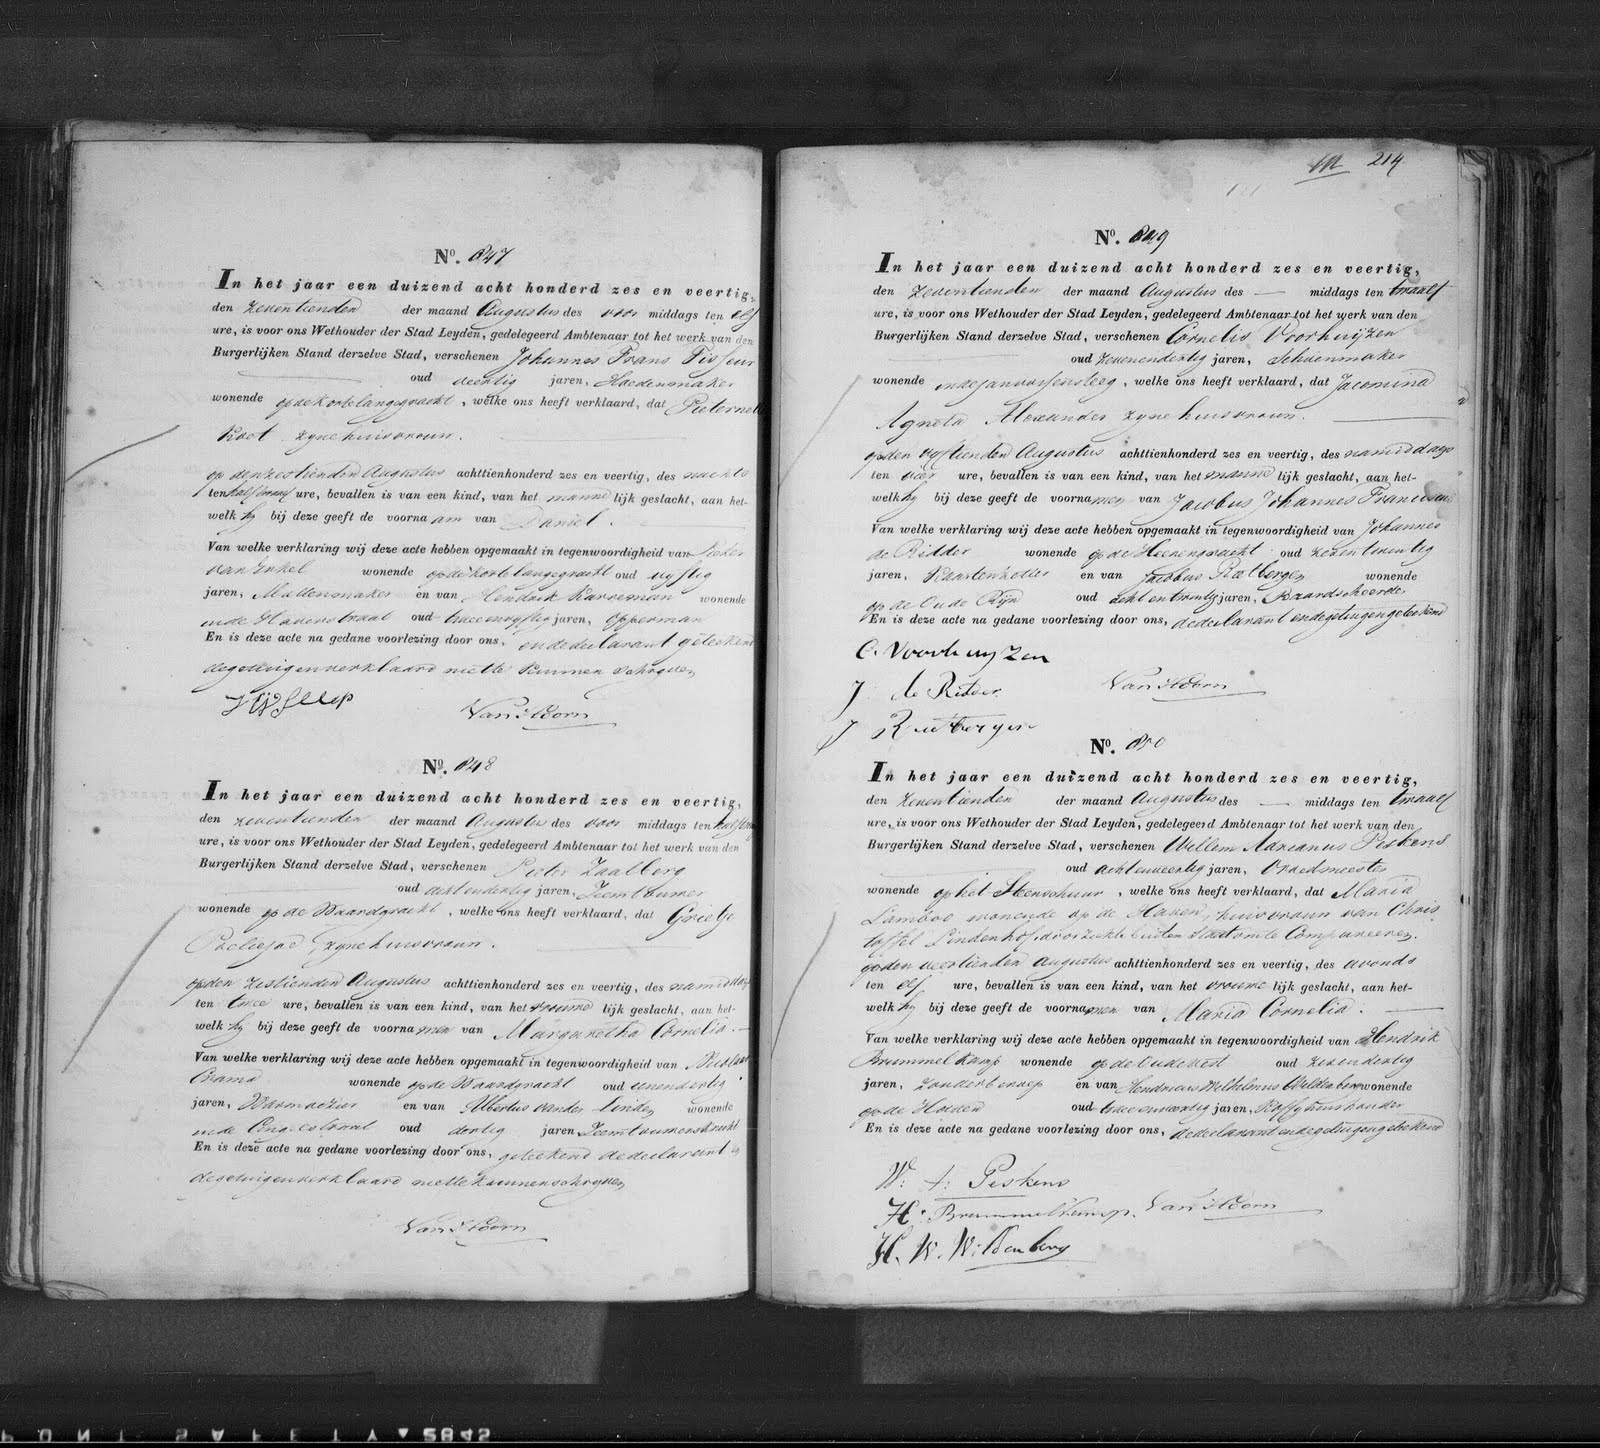 No. 847
In het jaar een duizend acht honderd zes en veertig,
den zeventienden der maand Augustus des voor middags ten elf
ure, is voor ons Wethouder der Stad Leyden, gedelegeerd Ambtenaar tot het werk van den
Burgerlijken Stand derzelve Stad, verschenen Johannes Frans
oud jaren, Hoedenmaker
wonende op de korte langegracht, welke ons heeft verklaard, dat Pieternel
zyne huisvrouw.
op den zestienden Augustus achttienhonderd zes en veertig, des nachts
ten half twaalf ure, bevallen is van een kind, van het manne lijk geslacht, aan het-
welk hy bij deze geeft de voorna am van Daniel.
Van welke verklaring wij deze acte hebben opgemaakt in tegenwoordigheid van Pieter
wonende op de korte langegracht oud vyftig
jaren, en van Hendrik wonende
in de Havenstraat oud twee en vyftig jaren, Opperman
En is deze acte na gedane voorlezing door ons, en de declarant geteekend
de getuigen verklaard niet te kunnen schryven
Van 't Hoorn
No. 848
In het jaar een duizend acht honderd zes en veertig,
den zeventienden der maand Augustus des voor middags ten half twaalf
ure, is voor ons Wethouder der Stad Leyden, gedelegeerd Ambtenaar tot het werk van den
Burgerlijken Stand derzelve Stad, verschenen Pieter Zaalberg
oud acht en dertig jaren,
wonende op de Waardgracht, welke ons heeft verklaard, dat Grietje
zyne huisvrouw.
op den zestienden Augustus achttienhonderd zes en veertig, des namiddags
ten twee ure, bevallen is van een kind, van het vrouwe lijk geslacht, aan het-
welk hy bij deze geeft de voorna men van Margaretha Cornelia.
Van welke verklaring wij deze acte hebben opgemaakt in tegenwoordigheid van
wonende op de Waardgracht oud een en dertig
jaren, en van Albertus van der Linden wonende
in de oud dertig jaren
En is deze acte na gedane voorlezing door ons, geteekend de declarant en
de getuigen verklaard niet te kunnen schryven
Van 't Hoorn
214
No. 849
In het jaar een duizend acht honderd zes en veertig,
den zeventienden der maand Augustus des — middags ten twaalf
ure, is voor ons Wethouder der Stad Leyden, gedelegeerd Ambtenaar tot het werk van den
Burgerlijken Stand derzelve Stad, verschenen Cornelis Voorhuyzen
oud zeven en dertig jaren, Schoenmaker
wonende in de Janvossensteeg, welke ons heeft verklaard, dat Jacomina
Agneta Alexander zyne huisvrouw.
op den vyftienden Augustus achttienhonderd zes en veertig, des namiddags
ten vier ure, bevallen is van een kind, van het manne lijk geslacht, aan het-
welk hy bij deze geeft de voorna men van Jacobus Johannes Franciscus
Van welke verklaring wij deze acte hebben opgemaakt in tegenwoordigheid van Johannes
de Ridder wonende op de Heerengracht oud
jaren, en van Jacobus wonende
op de Oude Rijn oud acht en twintig jaren, Baardscheerder
En is deze acte na gedane voorlezing door ons, de declarant en de getuigen geteekend
C. Voorhuyzen
J. de Ridder Van 't Hoorn
No. 850
In het jaar een duizend acht honderd zes en veertig,
den zeventienden der maand Augustus des — middags ten twaalf
ure, is voor ons Wethouder der Stad Leyden, gedelegeerd Ambtenaar tot het werk van den
Burgerlijken Stand derzelve Stad, verschenen Willem Adrianus Peskens
oud acht en veertig jaren, Vroedmeester
wonende op het Steenschuur, welke ons heeft verklaard, dat Maria
Lamboo wonende op de Haven, huisvrouw van Chris
toffel Lindenhof door ziekte buiten staat om te Compareeren.
op den veertienden Augustus achttienhonderd zes en veertig, des avonds
ten elf ure, bevallen is van een kind, van het vrouwe lijk geslacht, aan het-
welk hy bij deze geeft de voorna men van Maria Cornelia.
Van welke verklaring wij deze acte hebben opgemaakt in tegenwoordigheid van Hendrik
Brummelkamp wonende op de Oude Vest oud zes en dertig
jaren, zonder beroep en van Hendricus Wilhelmus Wildenberg wonende
op de Haven oud twee en veertig jaren, Koffyhuishouder
En is deze acte na gedane voorlezing door ons, de declarant en de getuigen geteekend
W: A: Peskens
H: Brummelkamp. Van 't Hoorn
H. W. Wildenberg